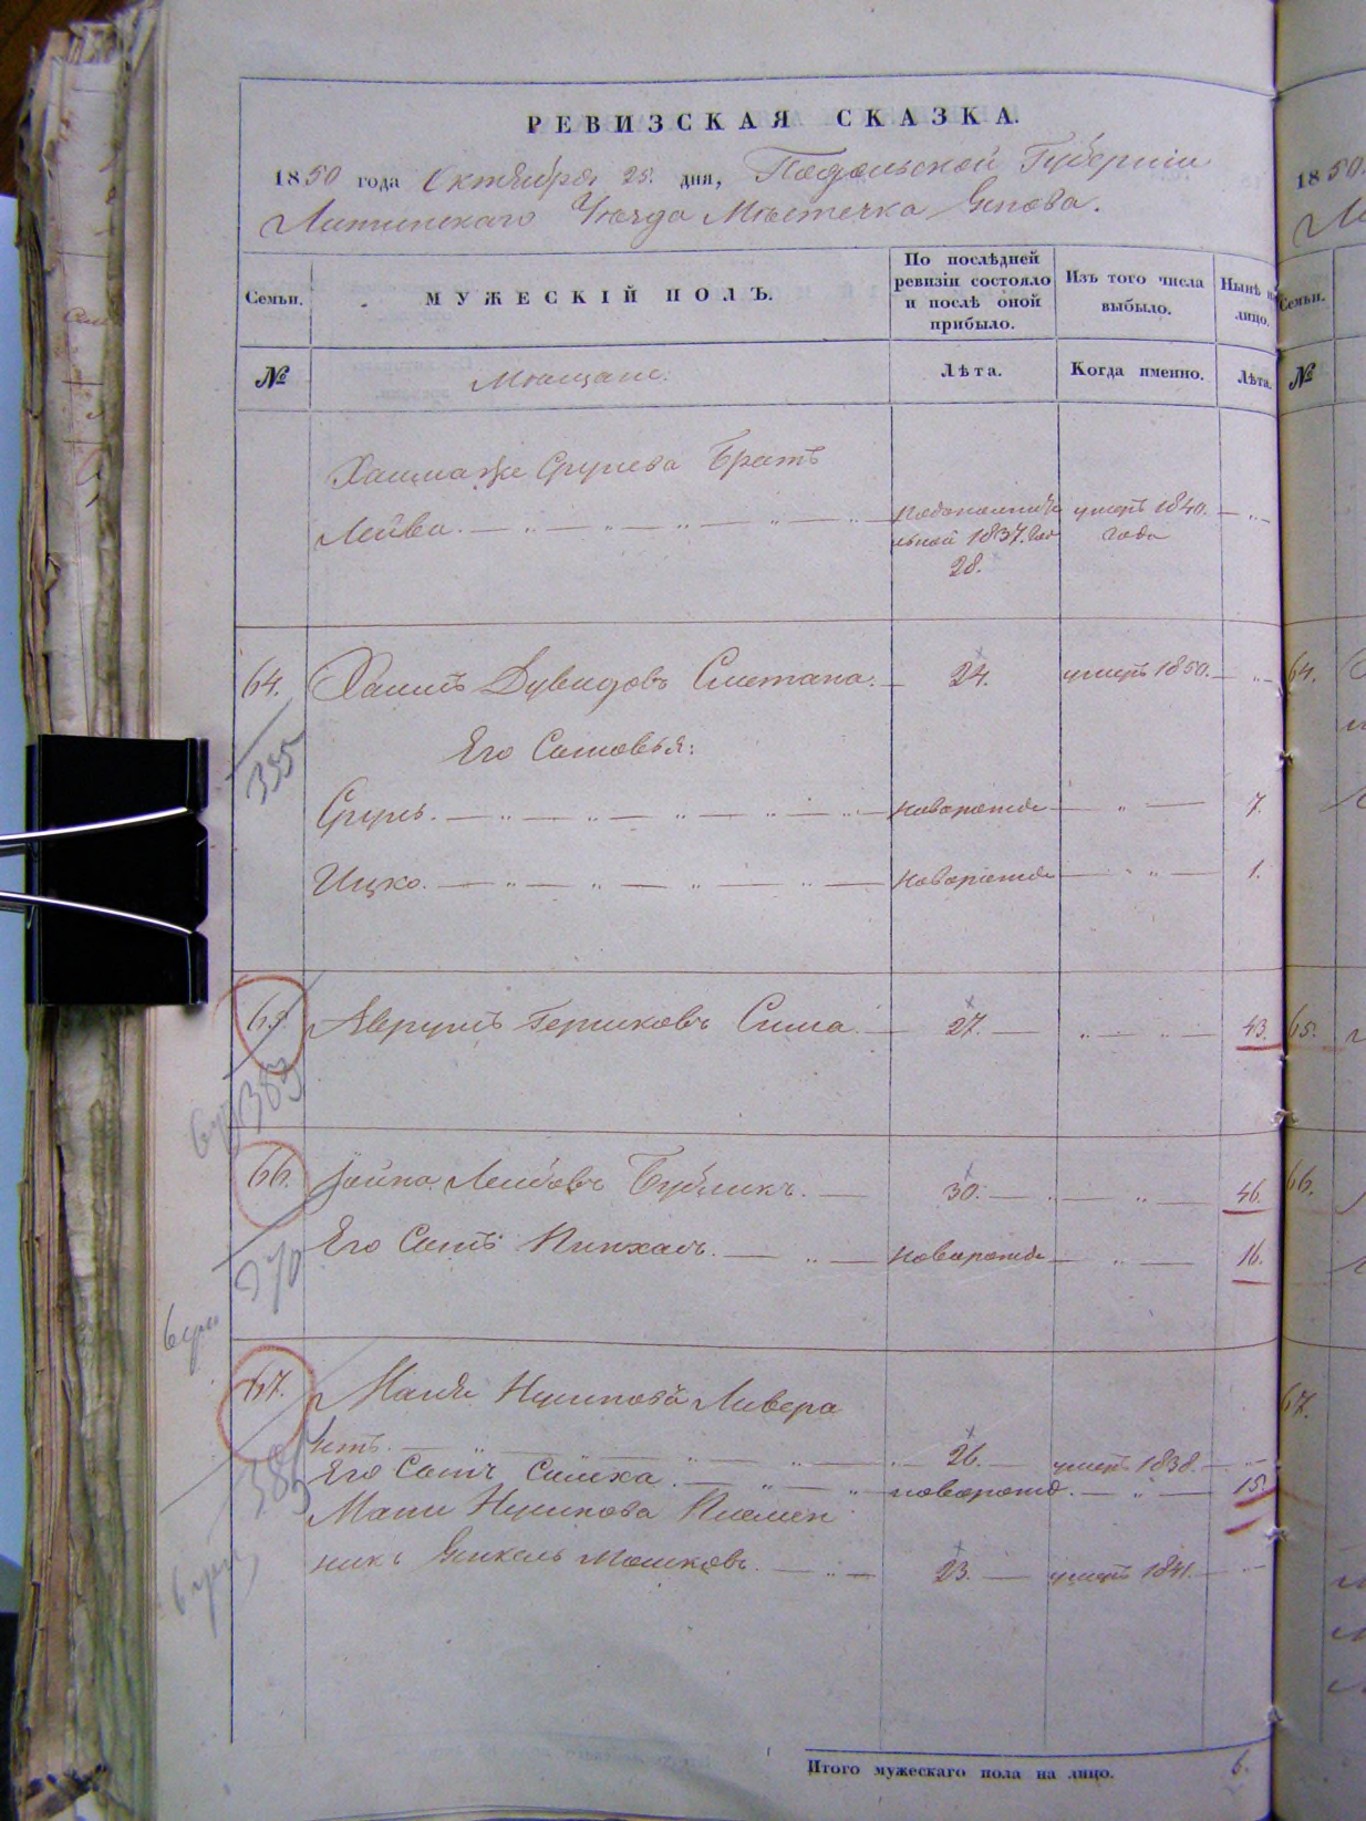 РЕВИЗСКАЯ СКАЗКА.
1850 года Октября 25. дня, Подольской Губернии
Литинскаго Уѣзда Мѣстечка
Семьи.
МУЖЕСКІЙ ПОЛЪ.
По послѣдней ревизіи состояло и послѣ оной прибыло.
Изъ того числа выбыло.
Нынѣ на лицо.
№
Мѣщане.
Лѣта.
Когда именно.
Лѣта.
Хаима же Сруля Братъ
Лейба. 1837. 28. умеръ 1840. года
64. Хаимъ Дувидовъ Сметана. 24. умеръ 1850.
335
Его Сыновья:
Сруль. новорожде 7.
Ицко. новорожде 1.
65. Аврумъ Гершковъ Сима. 27. 43.
383
66. Лейбовъ Бубликъ. 30. 46.
370
Его Сынъ Пинхасъ. новорожде 16.
67. Ливера
нтъ. 26. умеръ 1838.
Его Сынъ Симха. новорожд. 15.
Племен
никъ Мошковъ. 23. умеръ 1841.
Итого мужескаго пола на лицо. 6.
1850.
Семьи.
№
64.
65.
66.
67.